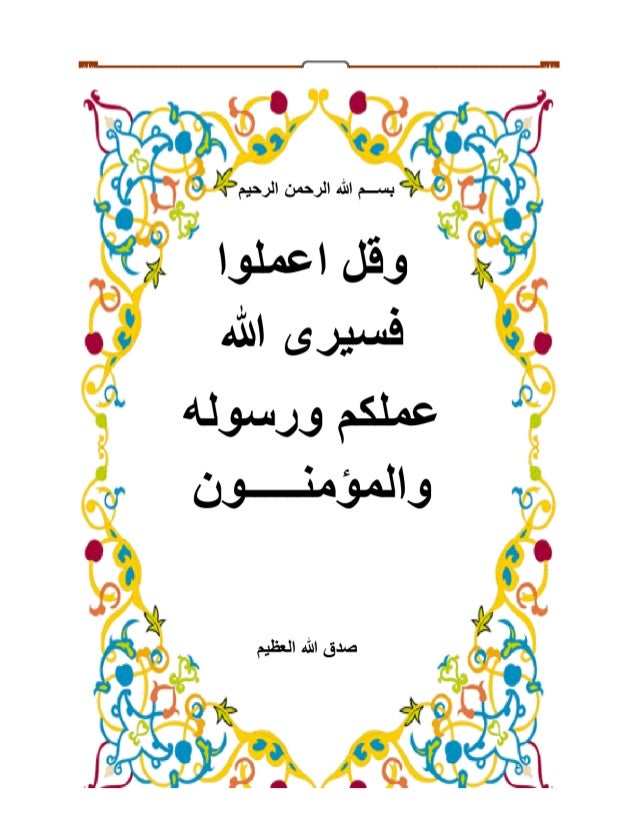 بســـم الله الرحمن الرحيم
وقل اعملوا
فسيرى الله
عملكم ورسوله
والمؤمنــــون
صدق الله العظيم